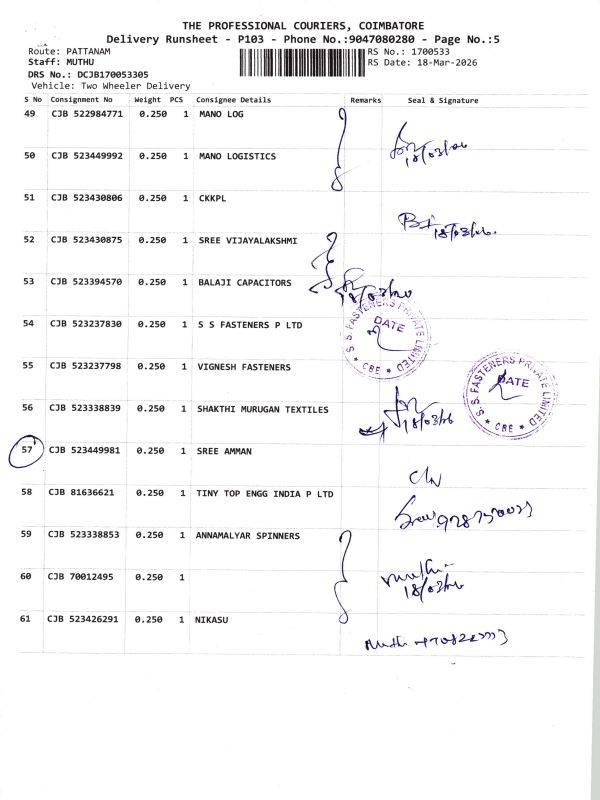 THE PROFESSIONAL COURIERS, COIMBATORE
Delivery Runsheet - P103 - Phone No.:9047080280 - Page No.:5
Route: PATTANAM RS No.: 1700533
Staff: MUTHU RS Date: 18-Mar-2026
DRS No.: DCJB170053305
Vehicle: Two Wheeler Delivery
S No Consignment No Weight PCS Consignee Details Remarks Seal & Signature
49 CJB 522984771 0.250 1 MANO LOG
18/03/26
50 CJB 523449992 0.250 1 MANO LOGISTICS
51 CJB 523430806 0.250 1 CKKPL
18/03/26
52 CJB 523430875 0.250 1 SREE VIJAYALAKSHMI
53 CJB 523394570 0.250 1 BALAJI CAPACITORS
18/03/26
54 CJB 523237830 0.250 1 S S FASTENERS P LTD
S. S. FASTENERS PRIVATE LIMITED
DATE
★ CBE ★
55 CJB 523237798 0.250 1 VIGNESH FASTENERS
S. S. FASTENERS PRIVATE LIMITED
DATE
★ CBE ★
56 CJB 523338839 0.250 1 SHAKTHI MURUGAN TEXTILES
18/03/26
57 CJB 523449981 0.250 1 SREE AMMAN
58 CJB 81636621 0.250 1 TINY TOP ENGG INDIA P LTD
59 CJB 523338853 0.250 1 ANNAMALYAR SPINNERS
60 CJB 70012495 0.250 1
Muthu
18/03/26
61 CJB 523426291 0.250 1 NIKASU
Muthu